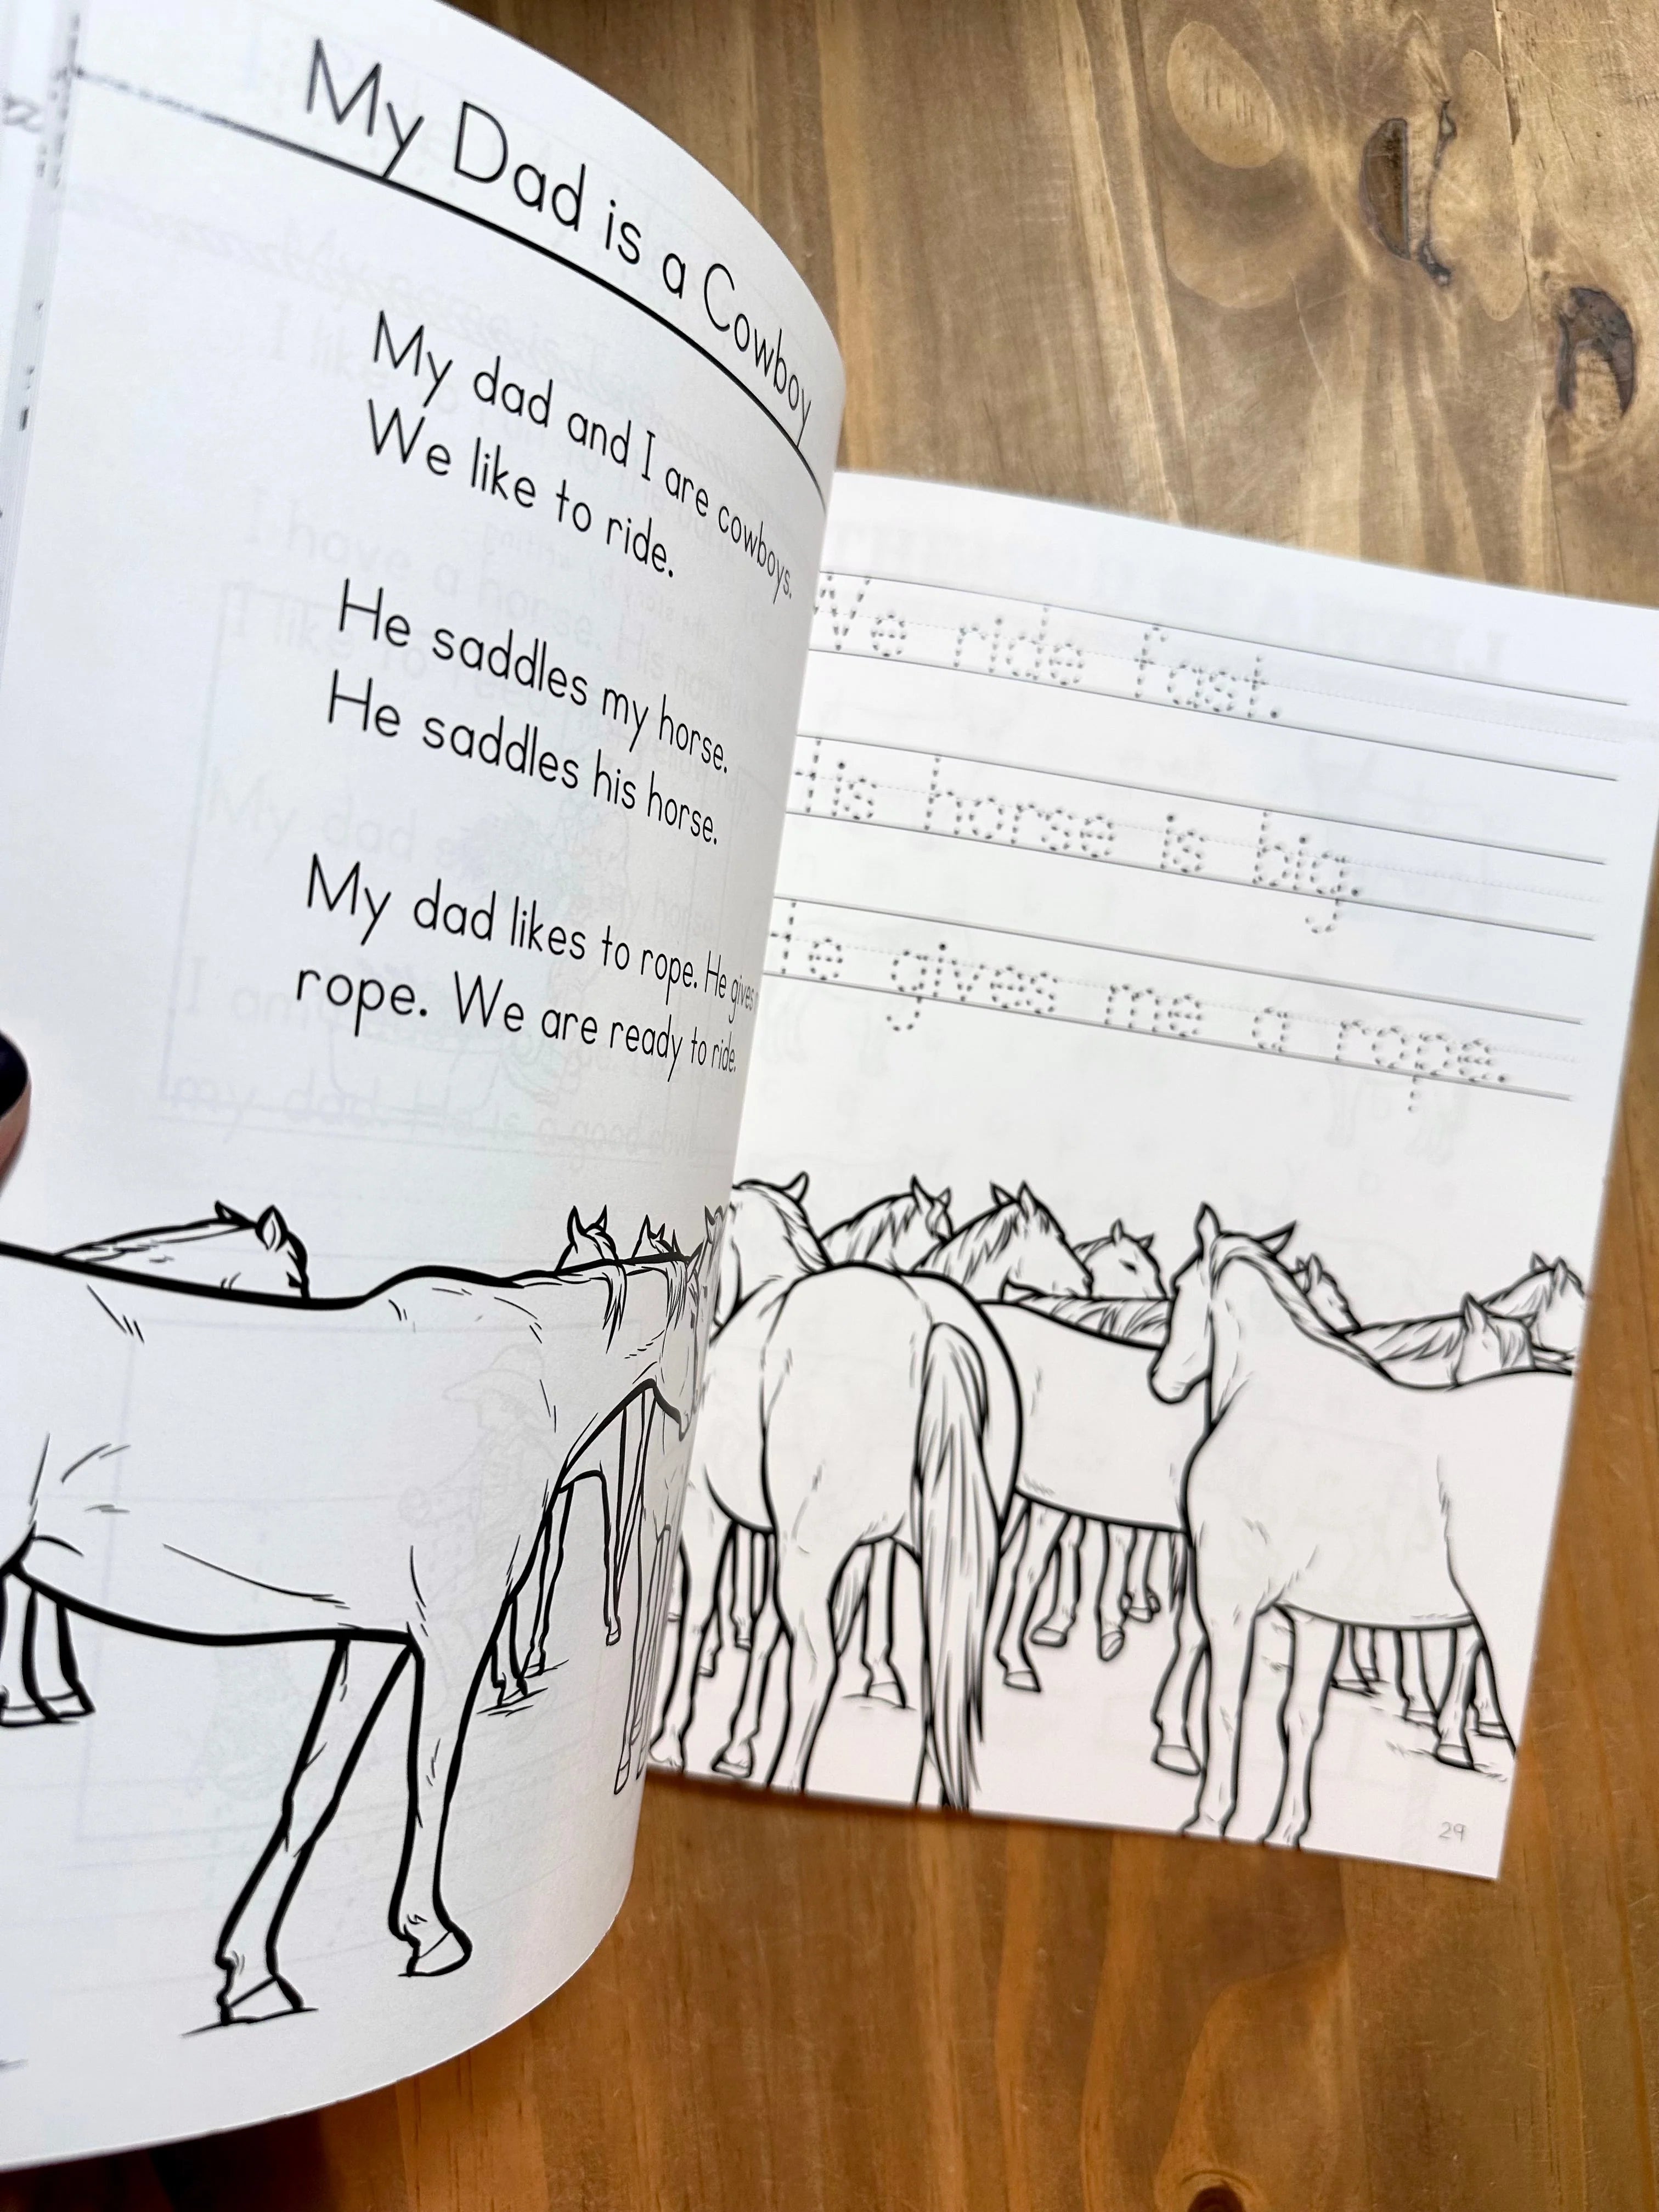 My Dad is a Cowboy
My dad and I are cowboys.
We like to ride.
He saddles my horse.
He saddles his horse.
My dad likes to rope. He gives
rope. We are ready to ride.
We ride fast.
His horse is big.
He gives me a rope.
29